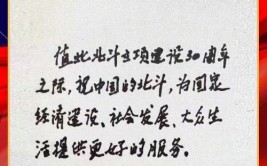 值此北斗立项建设30周年
之际，祝中国的北斗，为国家
经济建设、社会发展、大众生
活提供更好的服务。